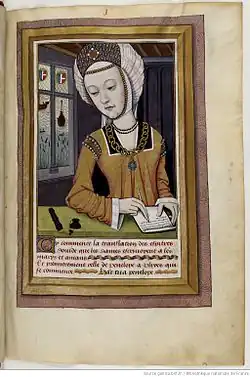 Cy commence la translation des epistres
Ouide que les dames escriuerent a leurs
marys et amans
Et premierement celle de penelope a vlixes qui
se commence Hanc tua penelope
Source gallica.bnf.fr / Bibliothèque nationale de France